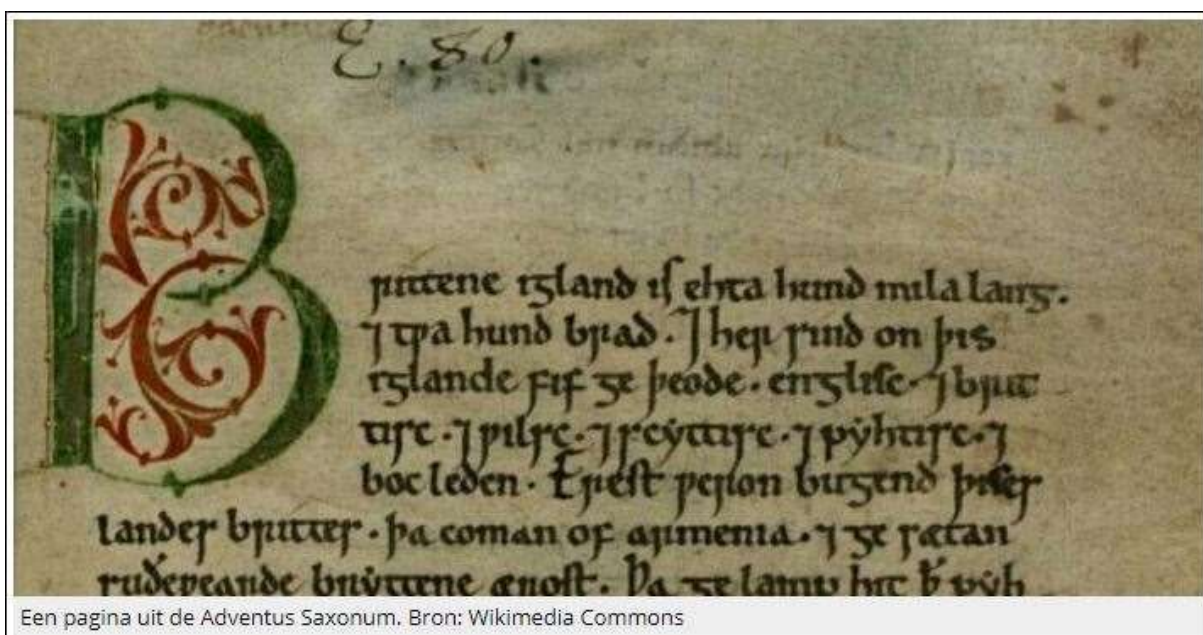 E. 80.
Brittene igland is ehta hund mila lang.
⁊ tƿa hund brad. ⁊ her sind on þis
iglande fif ge þeode. englisc. ⁊ brit
tisc. ⁊ ƿilsc. ⁊ scyttisc. ⁊ pyhtisc. ⁊
boc leden. Erest ƿeron bugend þises
landes brittes. þa coman of armenia. ⁊ ge sætan
suðeƿearde bryttene ærost. Þa ge lamp hit ꝥ pyh
Een pagina uit de Adventus Saxonum. Bron: Wikimedia Commons